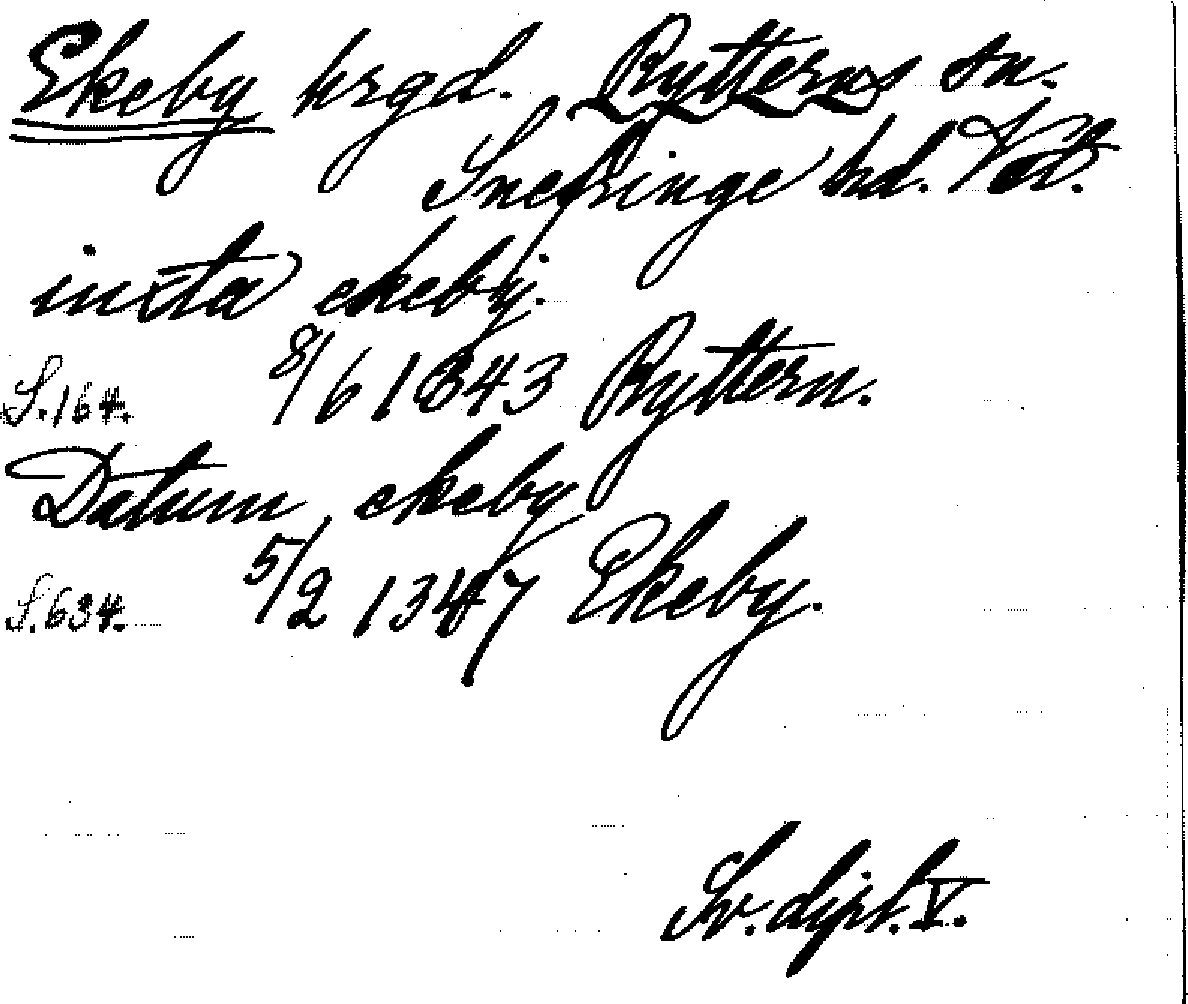 Ekeby hrgd. Rytterns sn.
Snefringe hd. Vstl.
iuxta ekeby.
S. 164. 8/6 1343 Ryttern.
Datum ekeby
S. 634. 5/2 1347 Ekeby.
Sv. dipl. V.